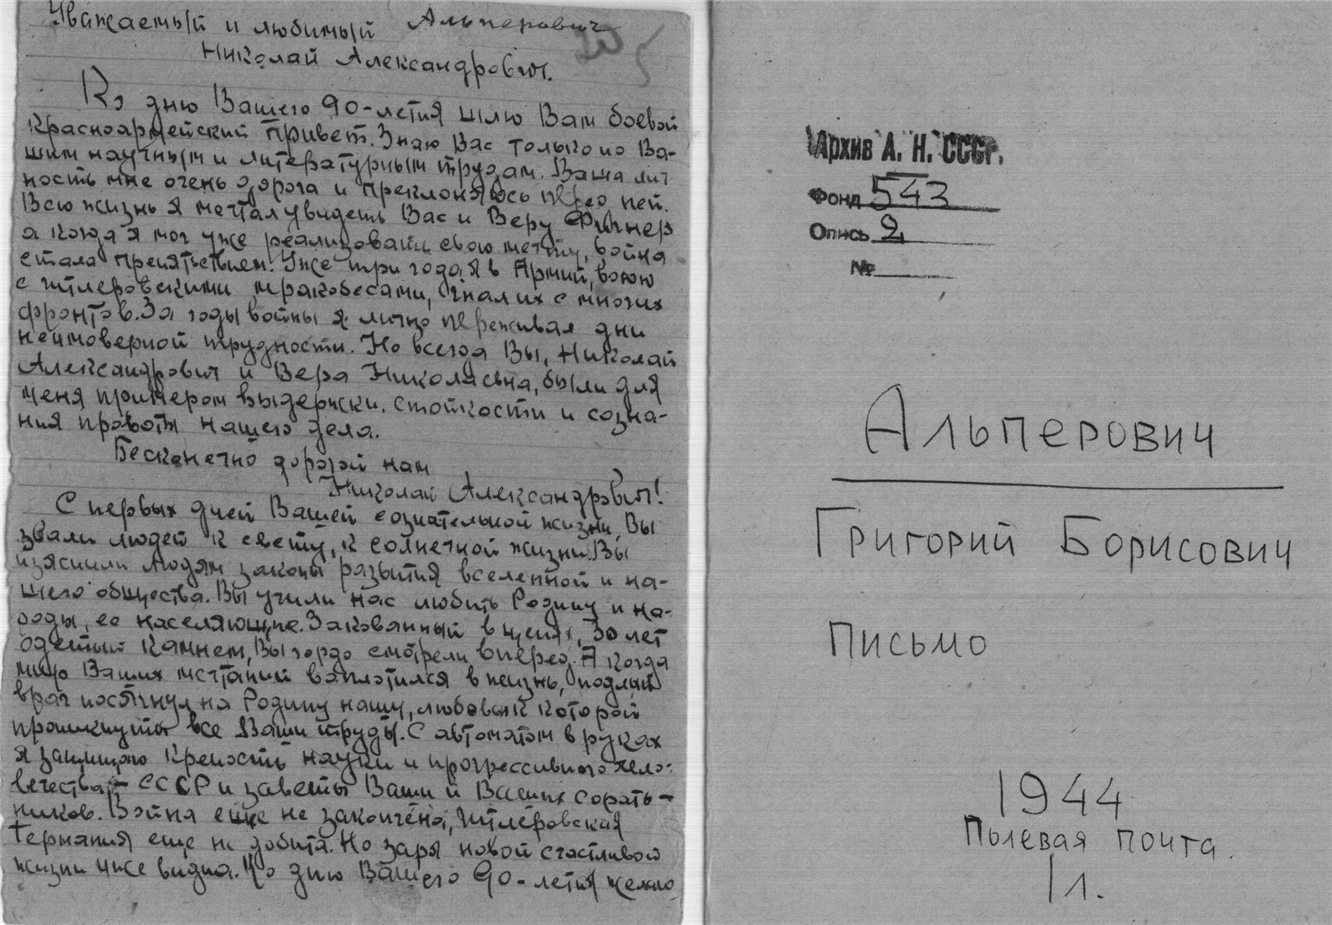 Уважаемый и любимый Альперович
Николай Александрович.
Ко дню Вашего 90-летия шлю Вам боевой
Красноармейский Привет. Знаю Вас только по Ва-
шим научным и литературным трудам. Ваша лич
ность мне очень дорога и преклоняюсь перед ней.
Всю жизнь я мечтал увидеть Вас и Веру Фигнер
а когда я мог уже реализовать свою мечту, война
стала препятствием. Уже три года я в Армии, воюю
с гитлеровскими мракобесами, гнал их с многих
фронтов. За годы войны я лично переживал дни
неимоверной трудности. Но всегда Вы, Николай
Александрович и Вера Николаевна, были для
меня примером выдержки, стойкости и созна-
ния правоты нашего дела.
Бесконечно дорогой нам
Николай Александрович!
С первых дней Вашей сознательной жизни, Вы
звали людей к свету, к солнечной жизни. Вы
изъяснили людям законы развития вселенной и на-
шего общества. Вы учили нас любить Родину и на-
роды, ее населяющие. Закованный в цепях, 30 лет
одетый камнем, Вы гордо смотрели вперед. А когда
Ваших мечтаний воплотился в жизнь, подлый
враг посягнул на Родину нашу, любовью к которой
проникнуты все Ваши труды. С автоматом в руках
я защищаю крепость науки и прогрессивного чело-
вечества – СССР и заветы Ваши и Ваших сорать-
ников. Война еще не закончена, гитлеровская
Германия еще не добита. Но заря новой счастливой
жизни уже видна. Ко дню Вашего 90-летия желаю
Архив А. Н. СССР.
Фонд 543
Опись 2
№
Альперович
Григорий Борисович
Письмо
1944
Полевая почта.
1 л.